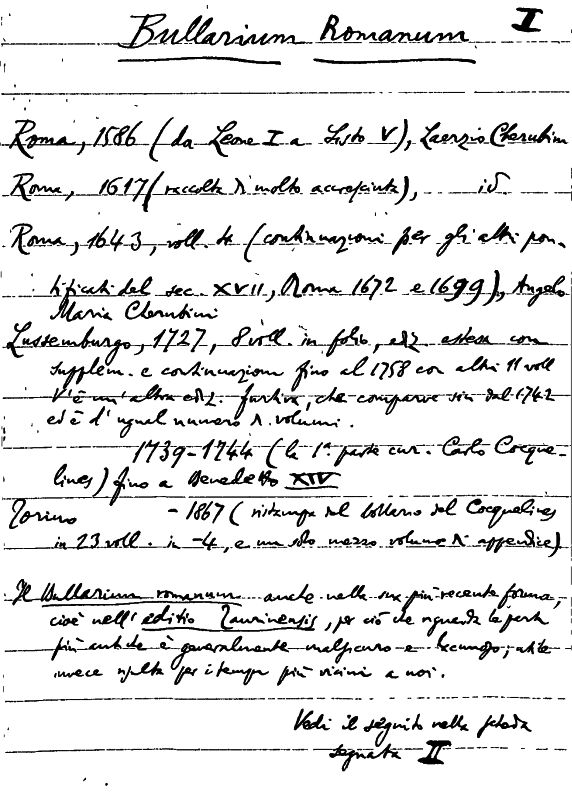 Bullarium Romanum I
Roma, 1586 (da Leone I a Sisto V), Laerzio Cherubini
Roma, 1617 (raccolta di molto accresciuta), id.
Roma, 1643, voll. (continuazioni per gli altri pon-
tificati del sec. XVII, Roma 1672 e 1699), Angelo
Maria Cherubini
Lussemburgo, 1727, 8 voll. in folio, ediz. estesa con
supplem. e continuazioni fino al 1758 con altri 11 voll
V'è un'altra ediz. furtiva, che comparve sin dal 1742
ed è d'ugual numero di volumi.
1739-1744 (la 1ª parte cur. Carlo Cocque-
lines) fino a Benedetto XIV
Torino - 1867 (ristampa del bollario del Cocquelines
in 23 voll. in -4, e un solo mezzo volume di appendice)
Il Bullarium romanum anche nella sua più recente forma,
cioè nell'editio Taurinensis, per ciò che riguarda le parti
più antiche è generalmente malsicuro e lacunoso; utile
invece risulta per i tempi più vicini a noi.
Vedi il seguito nella scheda
segnata II